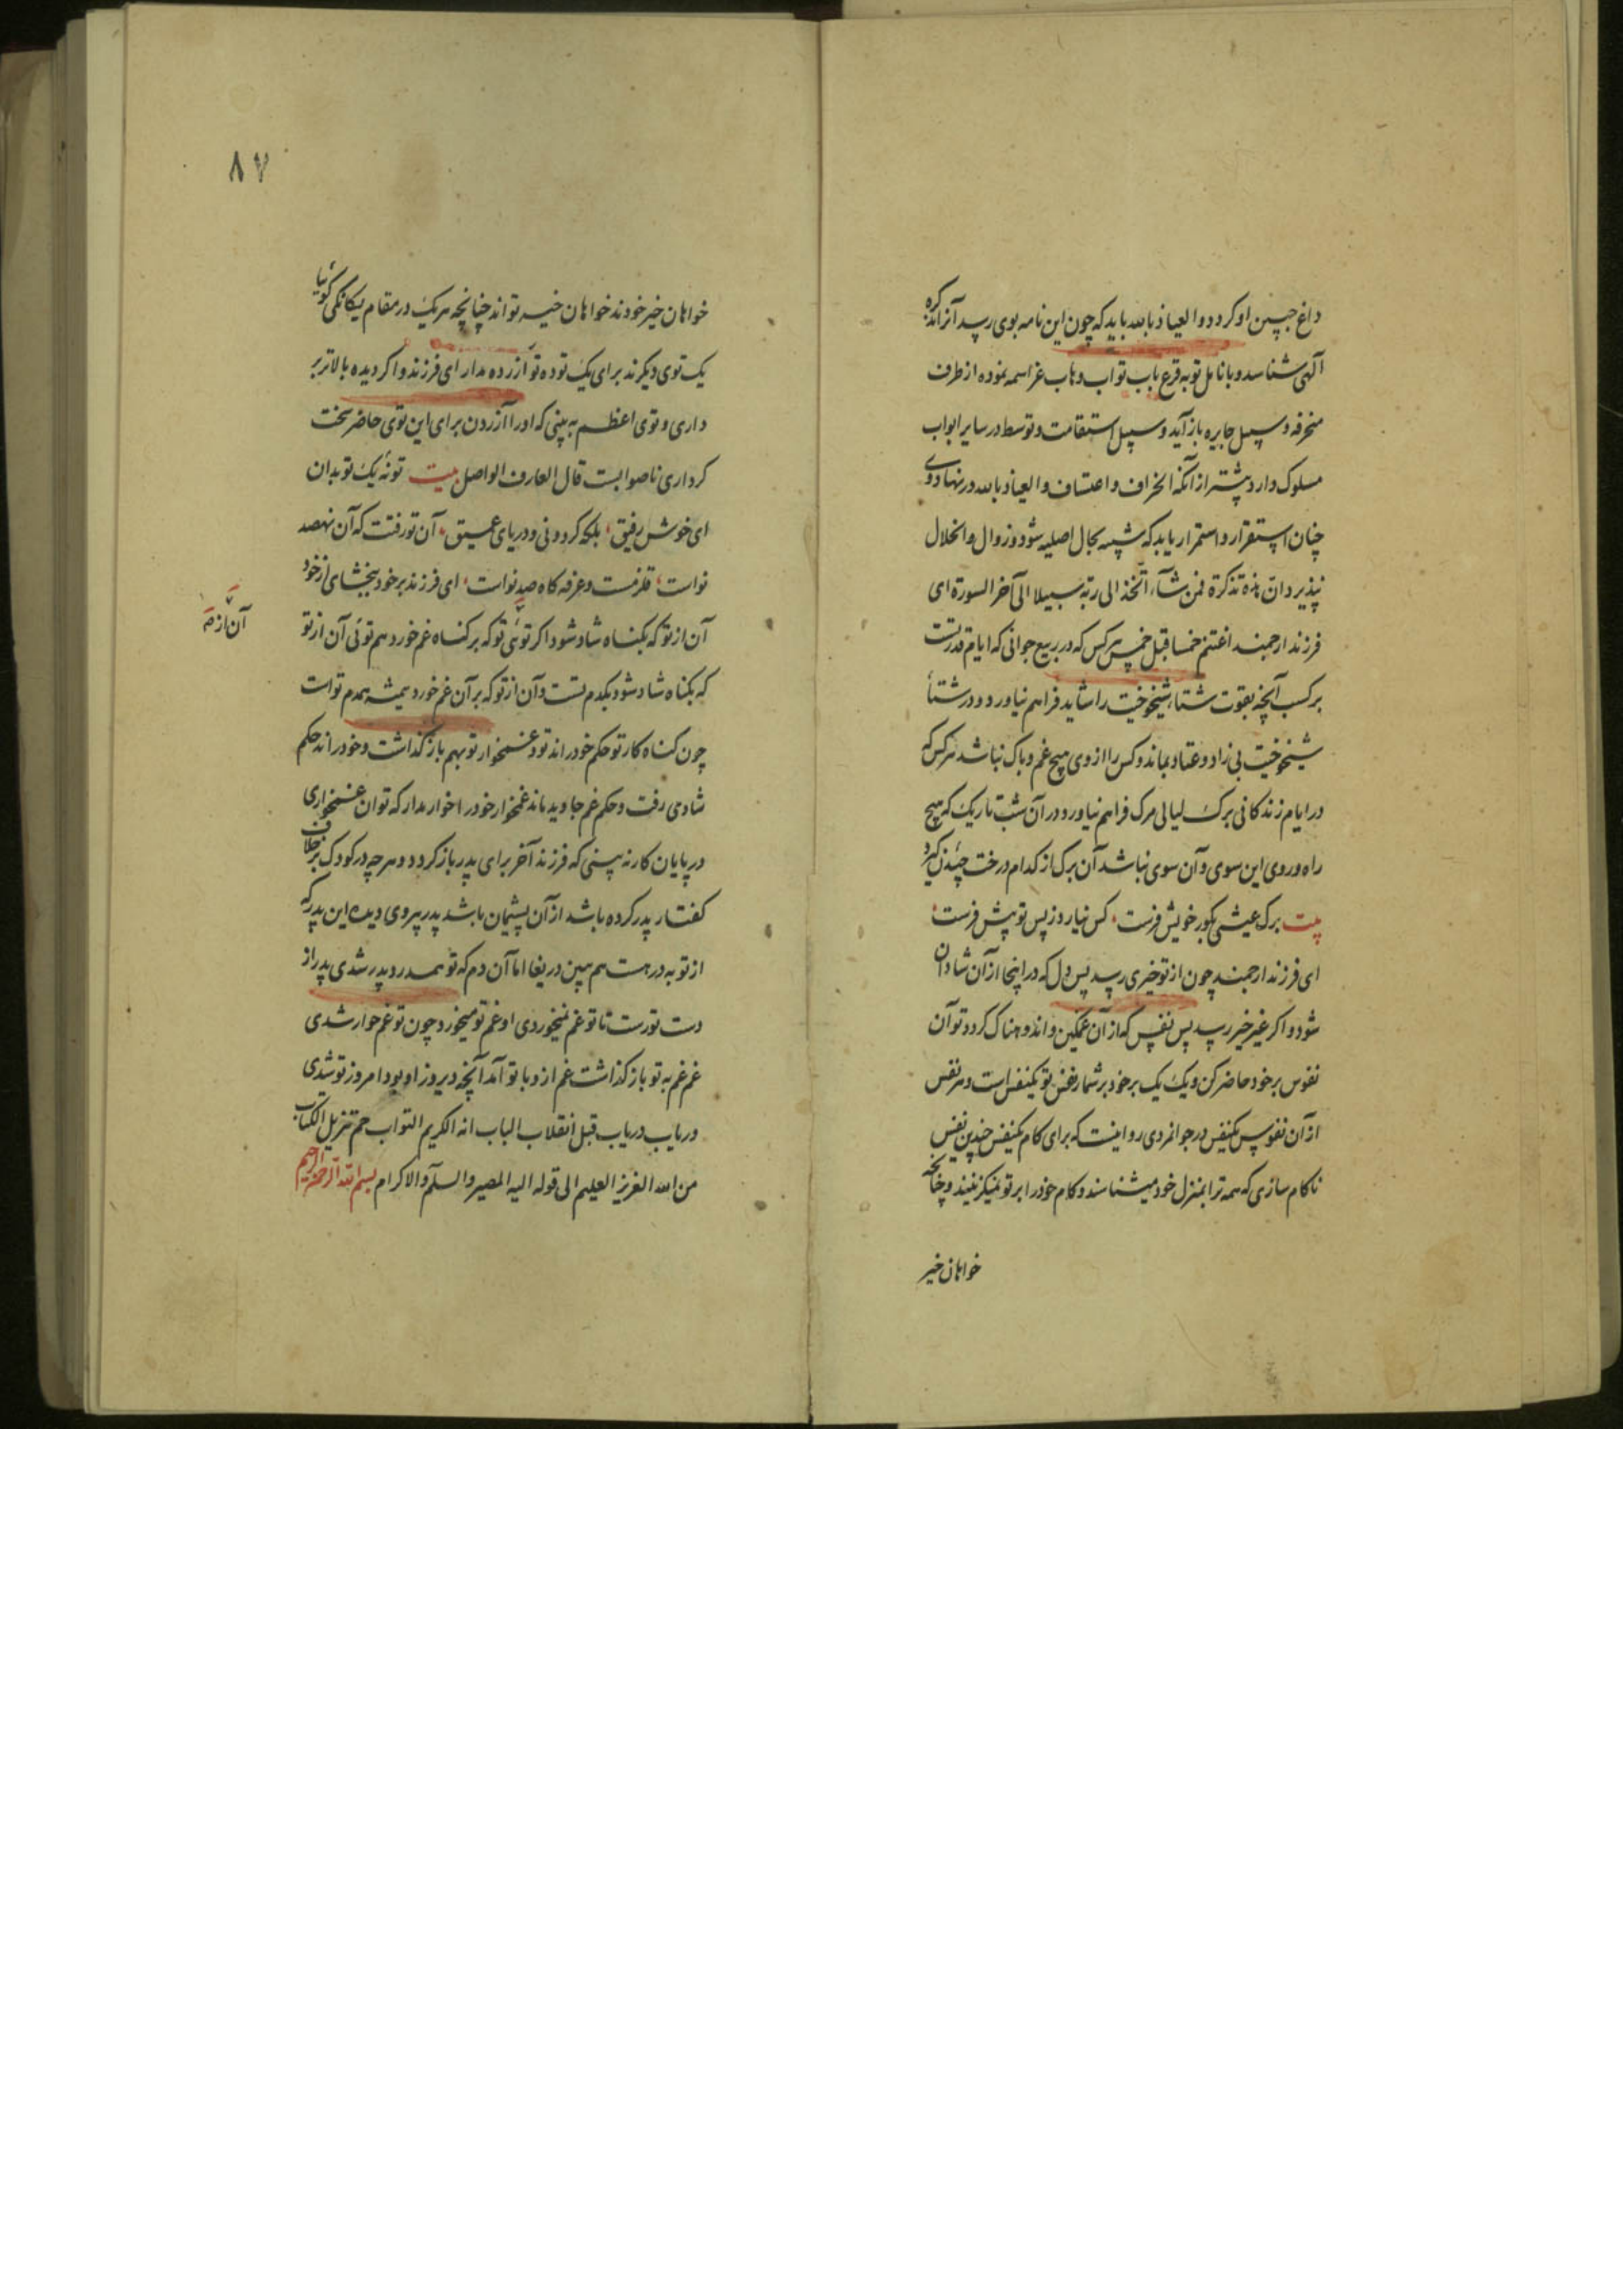 داغ جبین او کردد و العیاذ بالله باید که چون این نامه بوی رسد آنرا تذکره
آلهی شناسد و بانامل توبه قرع باب تواب وهاب عز اسمه نموده از طرف
منحرفه و سبیل جایره باز آید و سبیل استقامت و توسط در سایر ابواب
مسلوک دارد پیشتر از آنکه انحراف و اعتساف و العیاذ بالله در نهاد وی
چنان استقرار و استمرار یابد که شبیه بحال اصلیه شود و زوال و انحلال
نپذیرد ان هذه تذکرة فمن شآء اتخذ الی ربه سبیلا الی آخر السورة ای
فرزند ارجمند اغتنم خمسا قبل خمس هر کس که در ربیع جوانی که ایام قدرتست
بر کسب آنچه بقوت شتاء شیخوخیت را شاید فراهم نیاورد و در شتأ
شیخوخیت بی زاد و عتاد بماند و کس را از وی هیچ غم و باک نباشد هر کس که
در ایام زندکانی برک لیالی مرک فراهم نیاورد در آن شب تاریک که هیچ
راه و روی این سوی و آن سوی نباشد آن برک از کدام درخت چیدن کیرد
بیت برک عیشی بکور خویش فرست کس نیارد ز پس تو پیش فرست
ای فرزند ارجمند چون از تو خیری رسد بس دل که در اینجا از آن شادان
شود و اکر غیر خیر رسد بس نفس که از آن غمکین و اندوهناک کردد تو آن
نفوس بر خود حاضر کن و یک یک بر خود بر شمار نفس تو یکنفس است و هر نفس
از آن نفوس یکنفس در جوانمردی روا نیست که برای کام یکنفس چندین نفس
ناکام سازی که همه ترا بمنزل خود میشناسند و کام خود را بر تو نمیکزینند و چنانچه
خواهان خیر
۸۷
خواهان خیر خودند خواهان خیر تو اند چنانچه هر یک در مقام یکانکی کوئیا
یک توی دیکرند برای یک تو ده تو آزرده مدار ای فرزند و اکر دیده بالاتر بر
داری و توی اعظم به بینی که او را آزردن برای این توی حاضر سخت
کرداری ناصوابست قال العارف الواصل بیت تو نه یک تو بدان
ای خوش رفیق بلکه کردونی و دریای عمیق آن تو زفتت که آن نهصد
تو است قلزمست و غرقه کاه صد تو است ای فرزند بر خود ببخشای از خود
آن از تو که بکناه شاد شود اکر توئی تو که بر کناه غم خورد هم توئی آن از تو
آن از
که بکناه شاد شود یکدم تست و آن از تو که بر آن غم خورد همیشه همدم تو است
چون کناه کار تو حکم خود راند تو و غمخوار تو بهم باز کذاشت و خود راند حکم
شادی رفت و حکم غم جاوید ماند غمخوار خود را خوار مدار که تو آن غمخواری
در پایان کار نه بینی که فرزند آخر برای پدر باز کردد و هر چه در کودکی بر خلاف
کفتار پدر کرده باشد از آن پشیمان باشد پدر پیروی دیده این پدر که
از تو بدرهست هم ببین دریغا اما آن دم که تو همدرد پدر شدی پدر از
دست تو رست تا تو غم نمیخوردی او غم تو میخورد چون تو غم خوار شدی
غم غم به تو باز کذاشت غم از و با تو آمد آنچه دیروز او بود امروز تو شدی
دریاب دریاب قبل انقلاب الباب انه الکریم التواب حم تنزیل الکتاب
من الله العزیز العلیم الی قوله الیه المصیر و السلم و الاکرام بسم الله الرحمن الرحیم